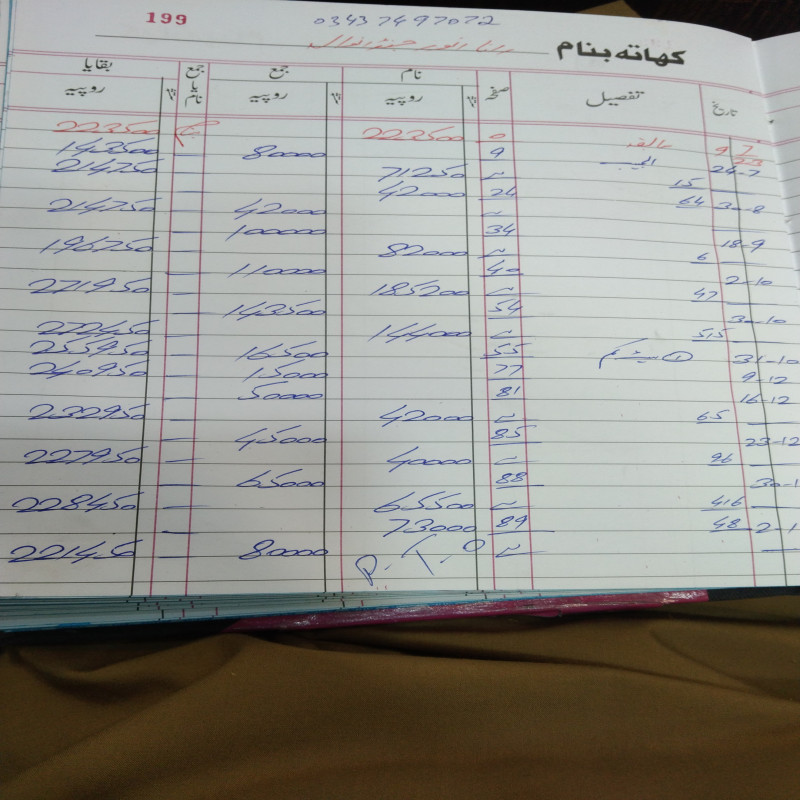 199
03437497072
کھاتہ بنام
تاریخ تفصیل صفحہ نام جمع جمع یا نام بقایا
روپیہ روپیہ روپیہ
9 7/23 سابقہ 0 223500 بنام 223500
24-7 9 80000 143500
15 71250 214750
30-8 64 24 42000
42000 214750
18-9 34 100000
6 82000 196750
2-10 40 110000
47 185200 271950
30-10 54 143500
515 144000 272450
31-10 55 16500 255950
9-12 77 15000 240950
16-12 81 50000
65 42000 232950
23-12 85 45000
96 40000 227950
30-1 88 65000
416 65500 228450
2-1 48 89 73000
80000 221450
P.T.O